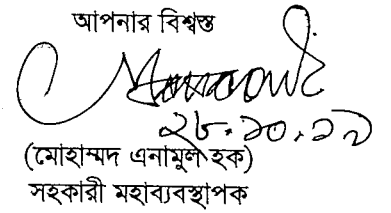 আপনার বিশ্বস্ত
২৮.১০.১৯
(মোহাম্মদ এনামুল হক)
সহকারী মহাব্যবস্থাপক